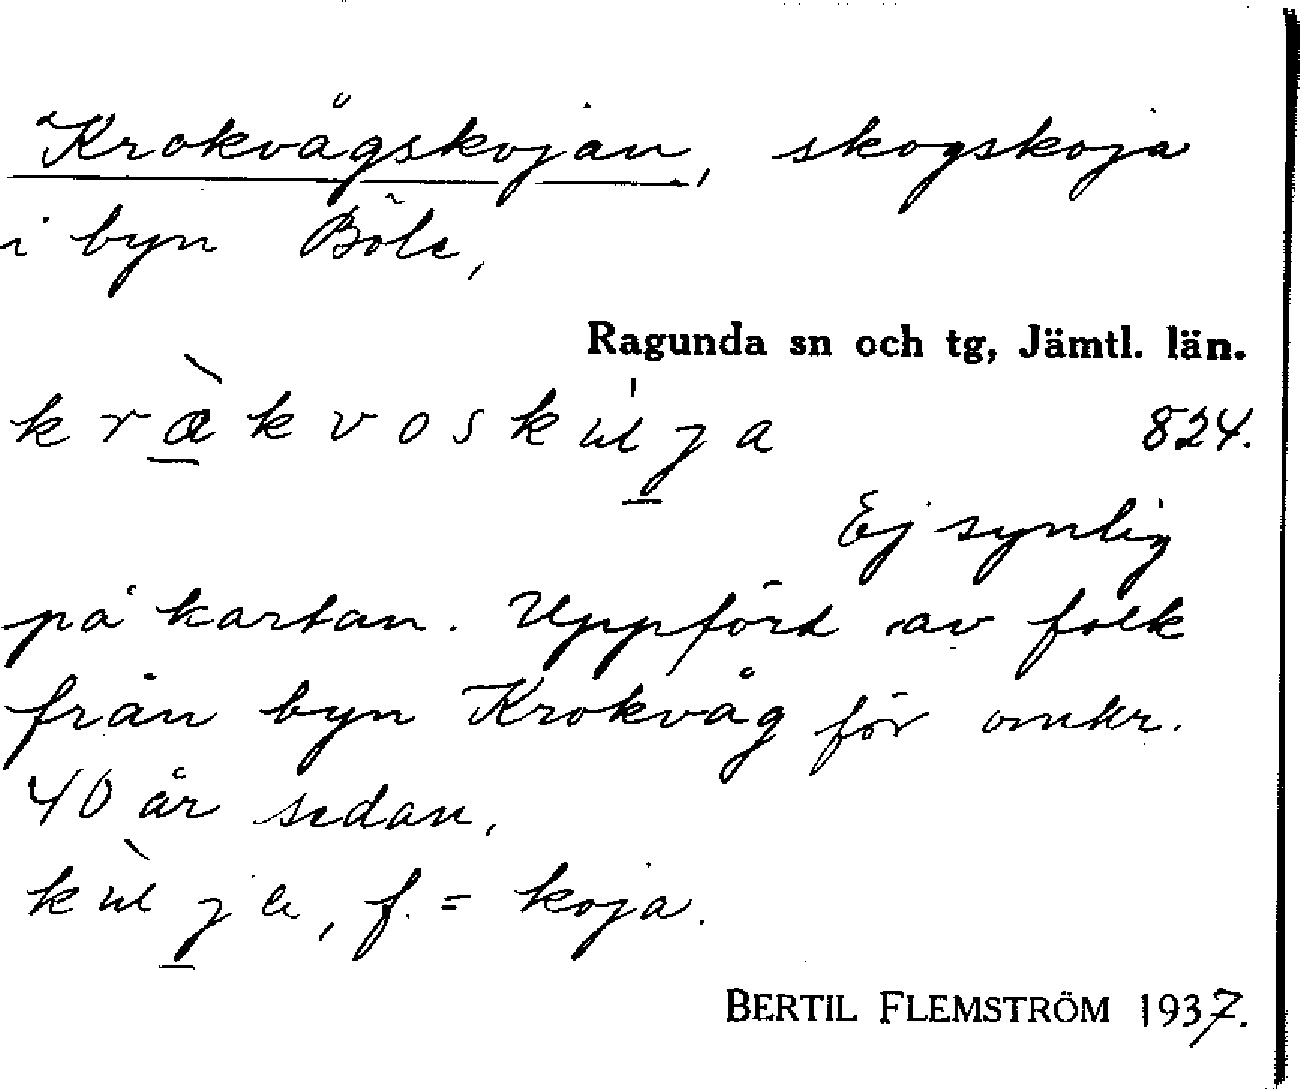 Krokvågskojan, skogskoja
i byn Böle,
Ragunda sn och tg, Jämtl. län.
kræ̀kvoskúja 824.
Ej synlig
på kartan. Uppförd av folk
från byn Krokvåg för omkr.
40 år sedan.
f. = koja.
BERTIL FLEMSTRÖM 1937.